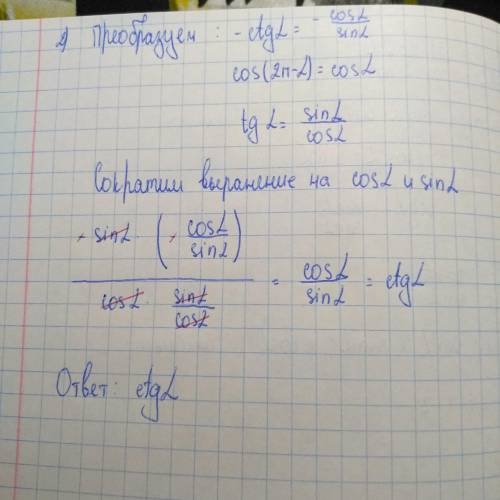 2) Преобразуем: -ctg L = - cosL/sinL
cos(2π-L) = cosL
tg L = sinL/cosL
Сократим выранение на cosL и sinL
(- sinL · (- cosL/sinL)) / (cosL · sinL/cosL) = cosL/sinL = ctgL
Ответ: ctgL